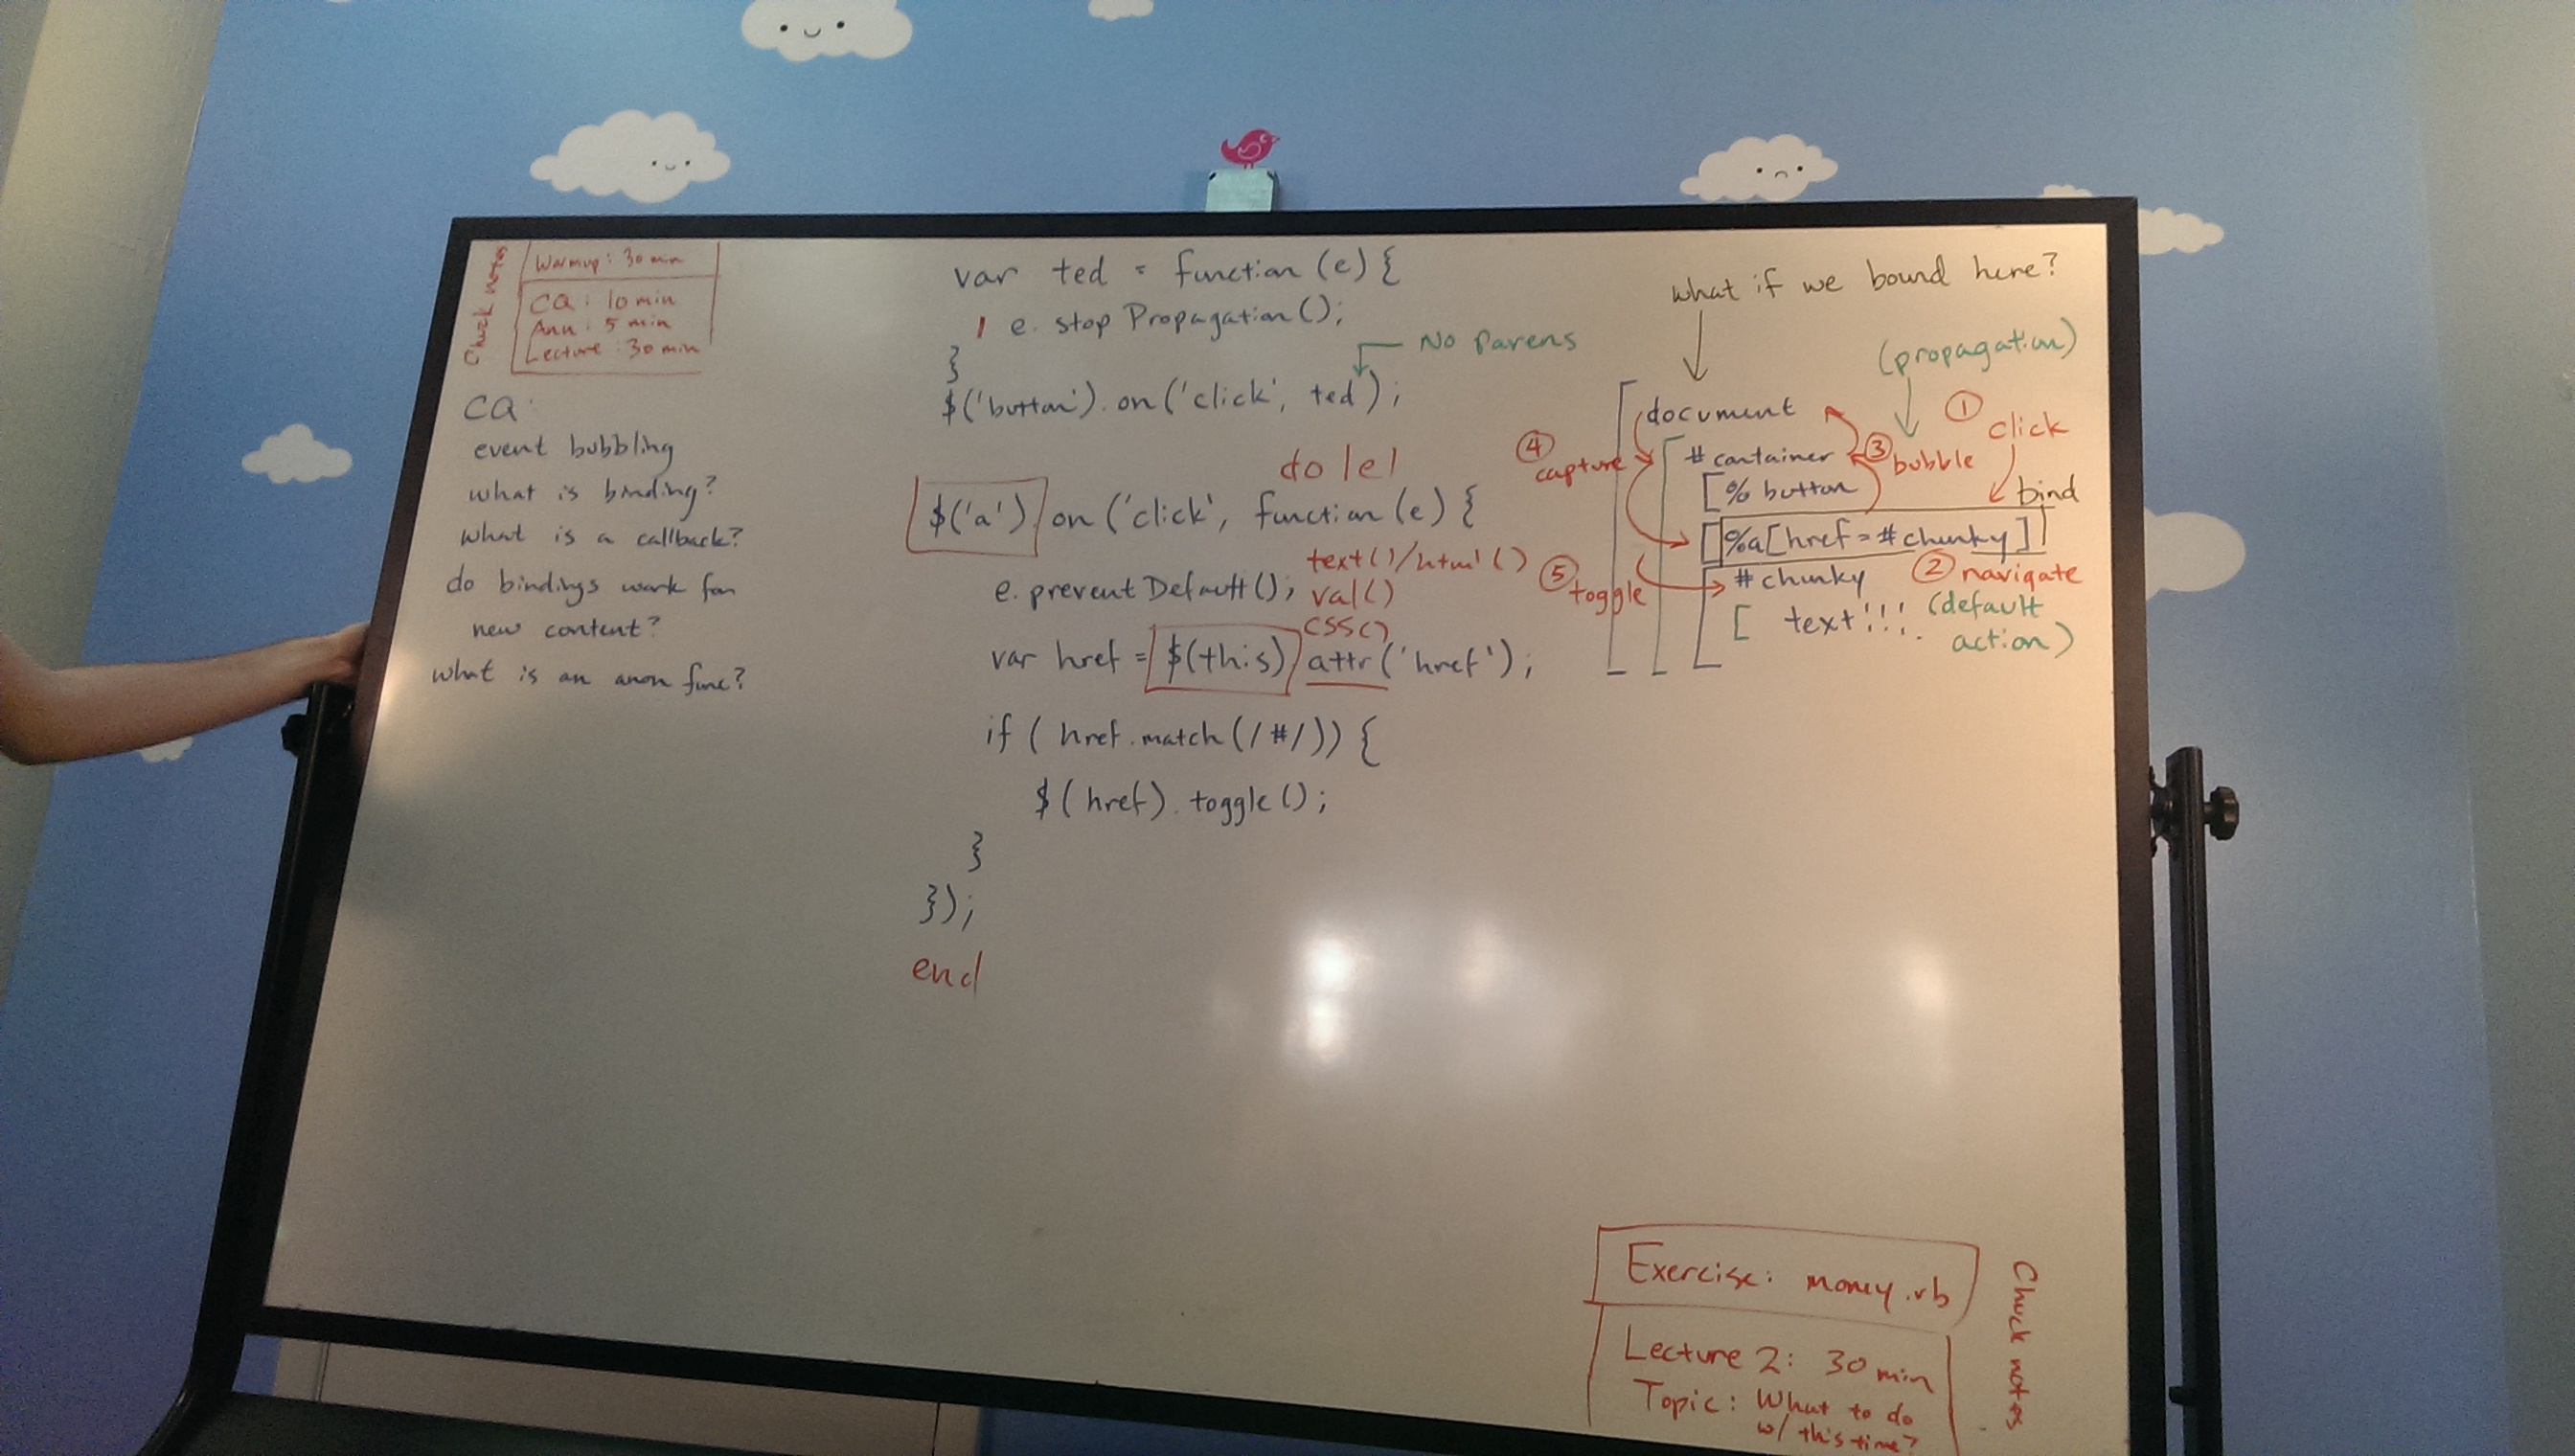 Chuck notes
Warmup: 30 min
CQ: 10 min
Ann: 5 min
Lecture: 30 min
CQ:
event bubbling
what is binding?
what is a callback?
do bindings work for
new content?
what is an anon func?
var ted = function (e) {
e. stop Propagation();
}
No Parens
$('button'). on ('click', ted);
do |e|
$('a'). on ('click', function (e) {
text()/html()
e. prevent Default(); val()
css()
var href = $(this). attr('href');
if ( href.match(/#/)) {
$(href). toggle();
}
});
end
what if we bound here?
(propagation)
document
① click
④ capture
# container
③ bubble
[% button
bind
[%a[href=#chunky]
⑤ toggle
# chunky
② navigate
[ text!!!
(default
action)
Exercise: money.rb
Lecture 2: 30 min
Topic: What to do
w/ this time?
Chuck notes